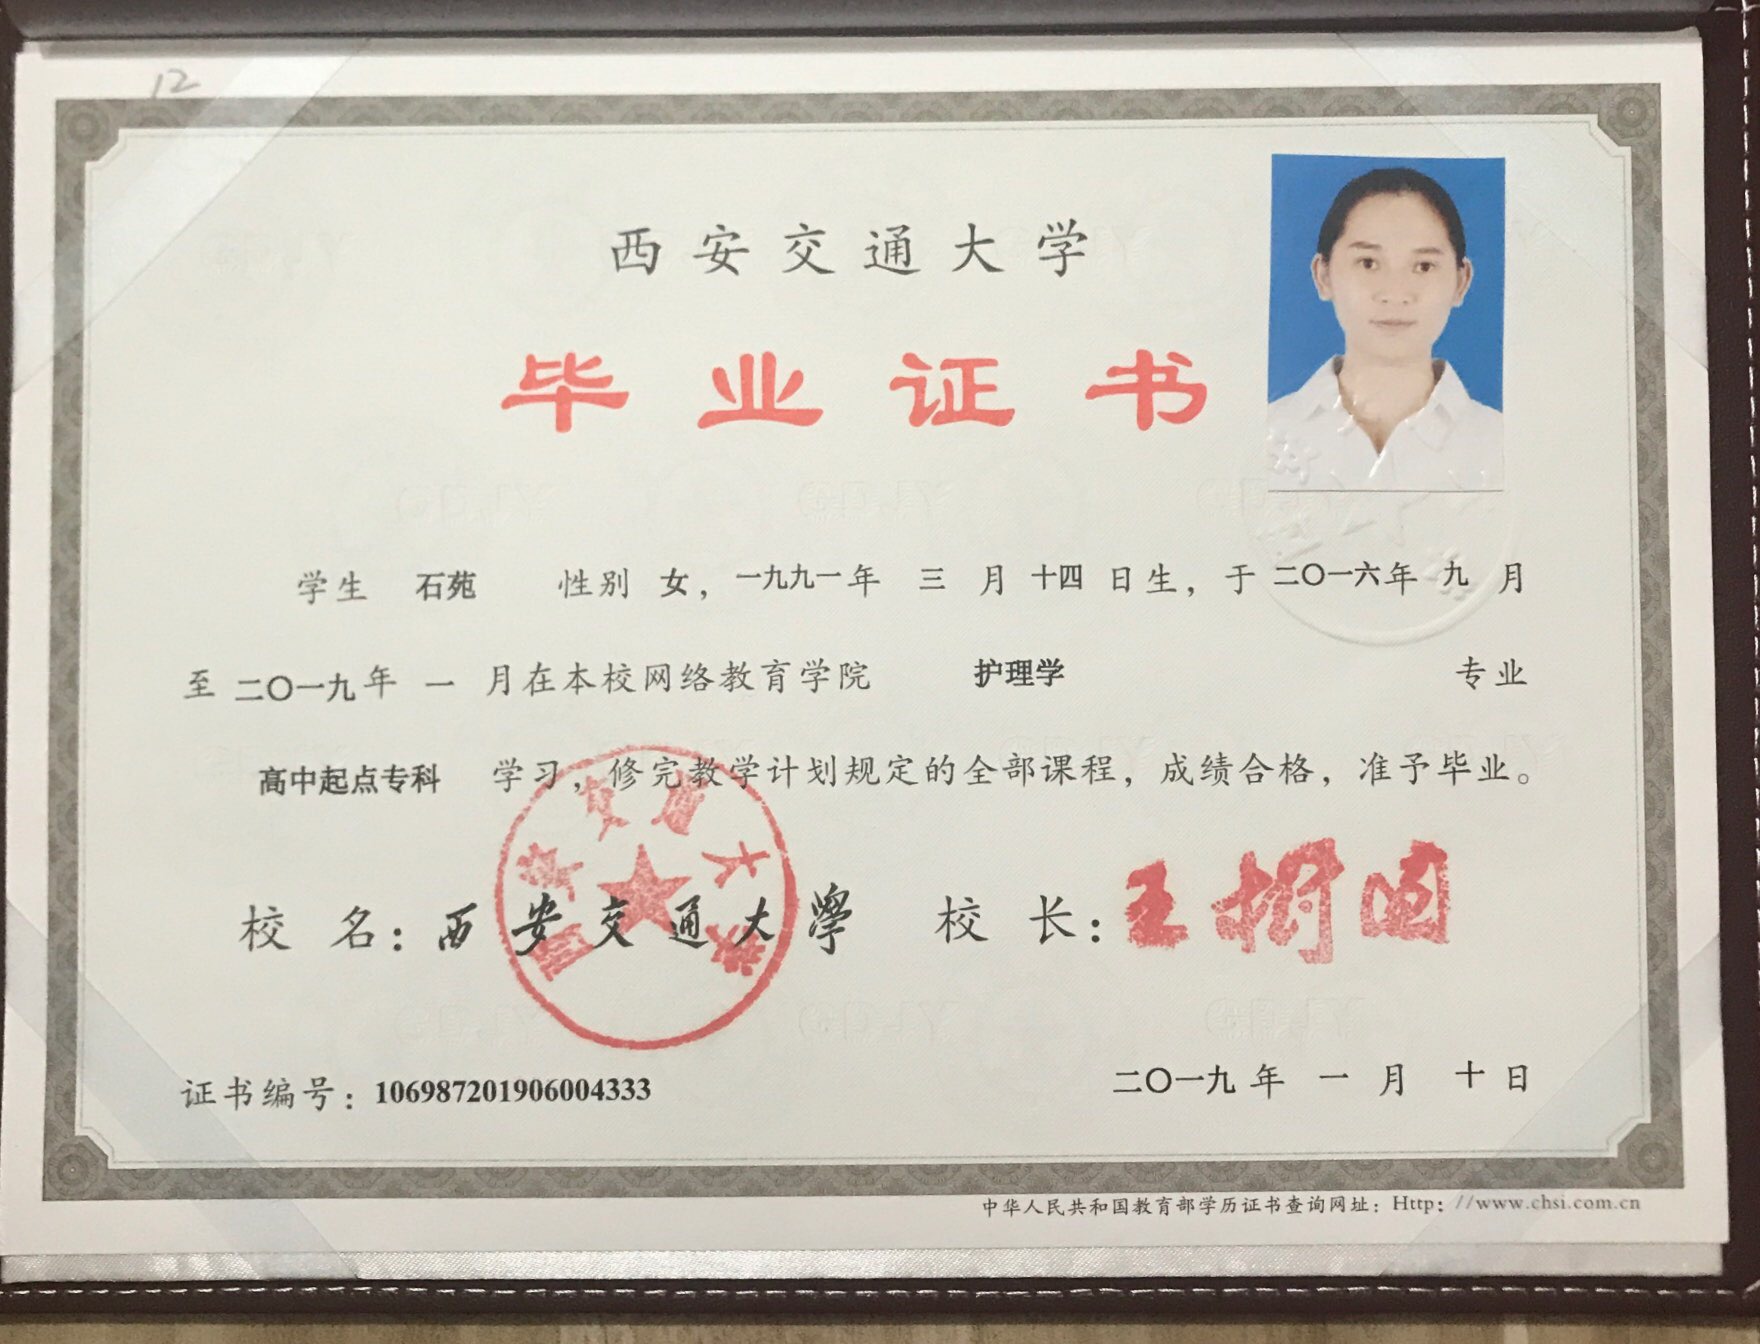 12
西安交通大学
毕业证书
学生 石苑 性别 女，一九九一年 三 月 十四 日生，于 二〇一六年 九 月
至 二〇一九年 一 月在本校网络教育学院 护理学 专业
高中起点专科 学习，修完教学计划规定的全部课程，成绩合格，准予毕业。
校 名：西安交通大學 校 长：王树国
证书编号：106987201906004333 二〇一九年 一 月 十 日
中华人民共和国教育部学历证书查询网址：Http：//www.chsi.com.cn